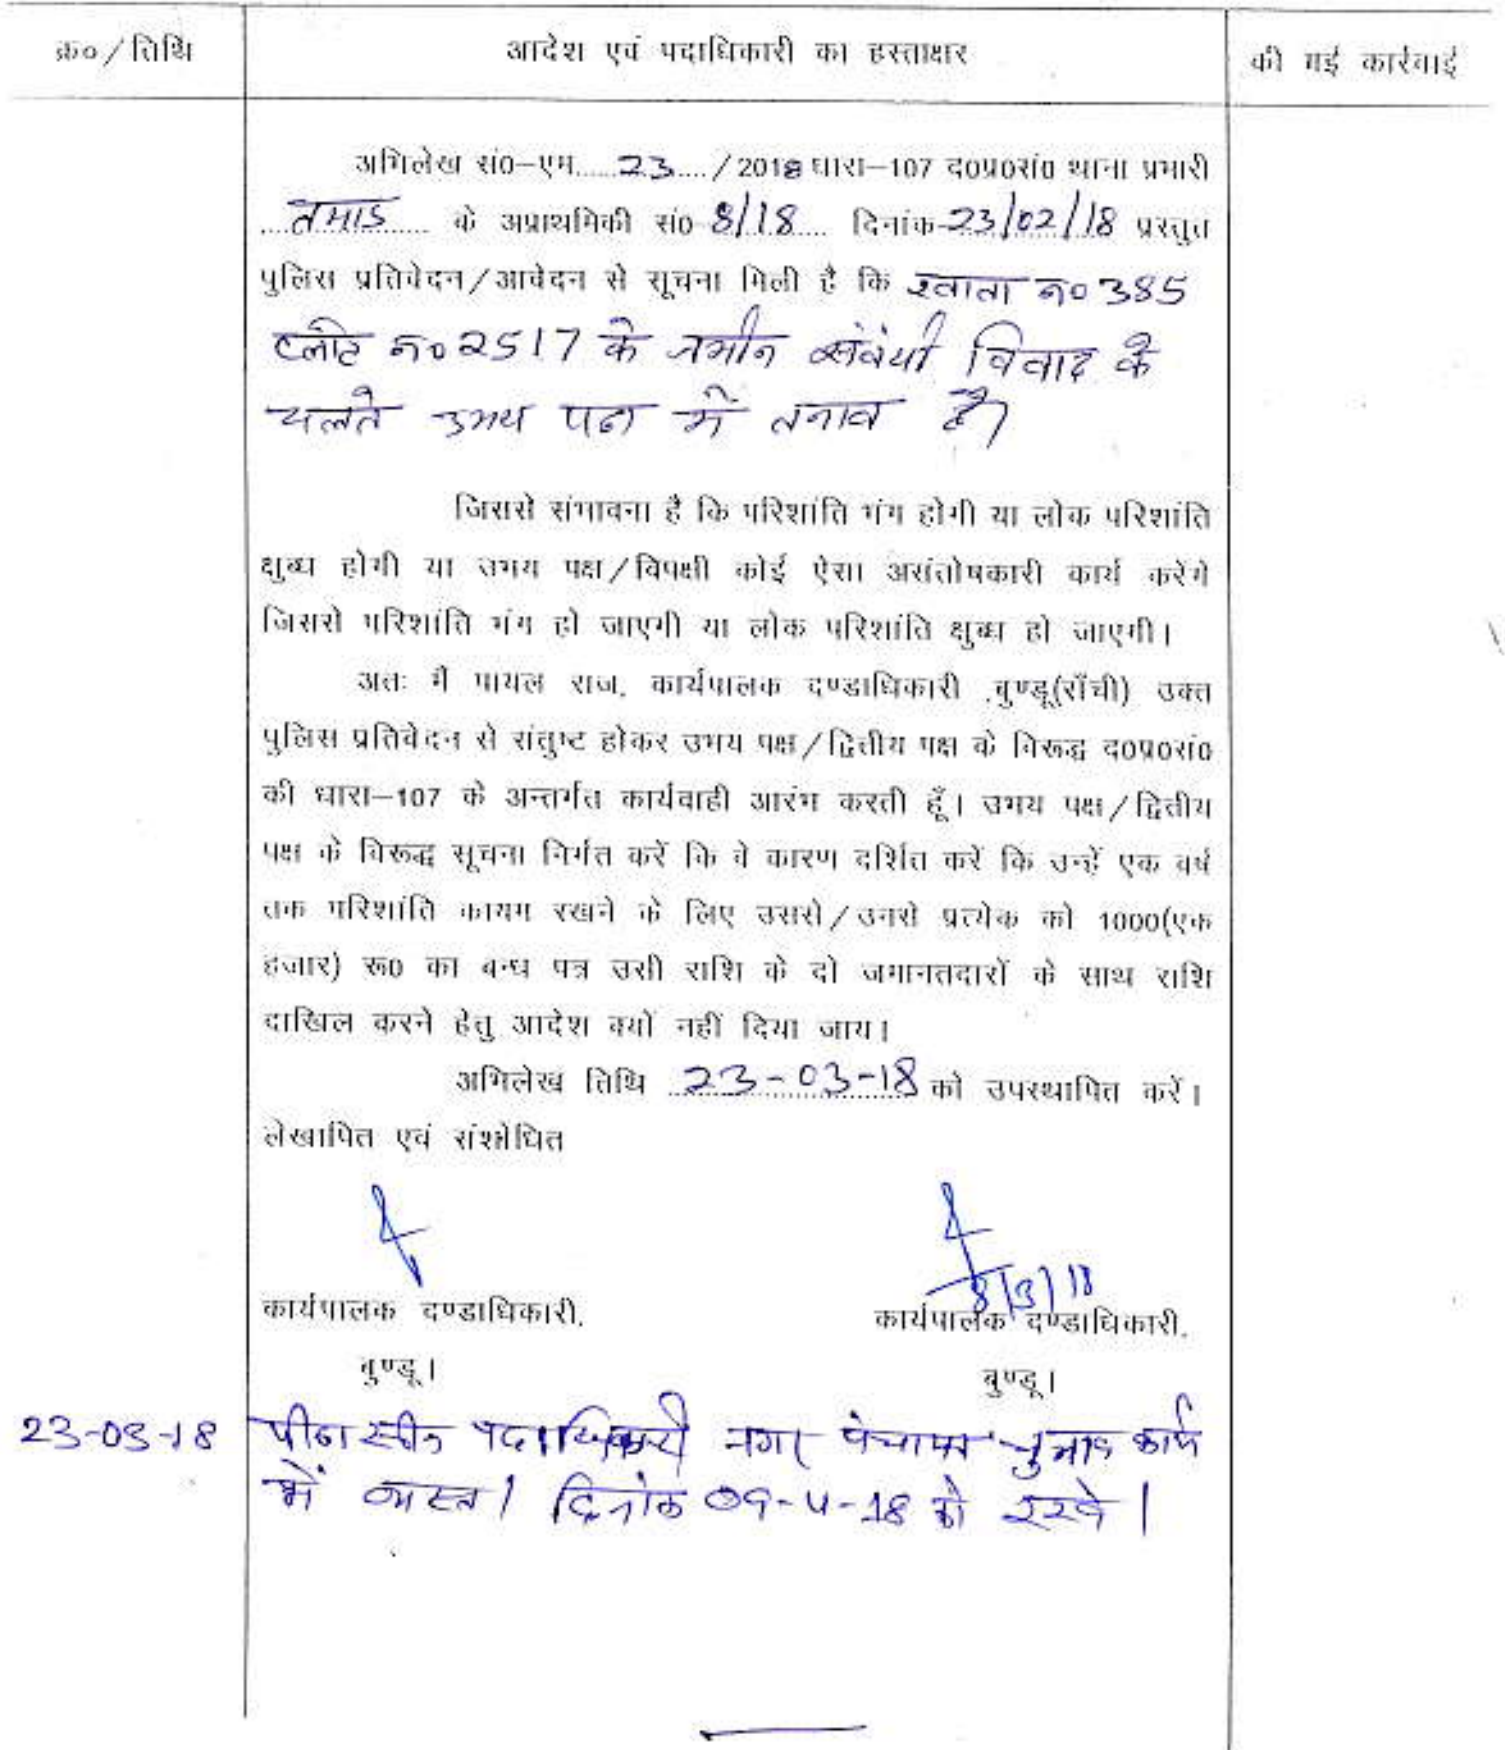 क्र०/तिथि आदेश एवं पदाधिकारी का हस्ताक्षर की गई कार्रवाई
अभिलेख सं0-एम......23..../2018 धारा-107 द0प्र0सं0 थाना प्रभारी
तमाड़ के अप्राथमिकी सं0 8/18 दिनांक-23/02/18 प्रस्तुत
पुलिस प्रतिवेदन/आवेदन से सूचना मिली है कि खाता न0 385
प्लौट न0 2517 के जमीन संबंधी विवाद के
चलते उभय पक्ष में तनाव है।
जिससे संभावना है कि परिशांति भंग होगी या लोक परिशांति
क्षुब्ध होगी या उभय पक्ष/विपक्षी कोई ऐसा असंतोषकारी कार्य करेंगे
जिससे परिशांति भंग हो जाएगी या लोक परिशांति क्षुब्ध हो जाएगी।
अतः मैं पायल राज, कार्यपालक दण्डाधिकारी ,बुण्डू(राँची) उक्त
पुलिस प्रतिवेदन से संतुष्ट होकर उभय पक्ष/द्वितीय पक्ष के विरूद्ध द0प्र0सं0
की धारा-107 के अन्तर्गत कार्यवाही आरंभ करती हूँ। उभय पक्ष/द्वितीय
पक्ष के विरूद्ध सूचना निर्गत करें कि वे कारण दर्शित करें कि उन्हें एक वर्ष
तक परिशांति कायम रखने के लिए उससे/उनसे प्रत्येक को 1000(एक
हजार) रू0 का बन्ध पत्र उसी राशि के दो जमानतदारों के साथ राशि
दाखिल करने हेतु आदेश क्यों नहीं दिया जाय।
अभिलेख तिथि 23-03-18 को उपस्थापित करें।
लेखापित एवं संशोधित
8/3/18
कार्यपालक दण्डाधिकारी, कार्यपालक दण्डाधिकारी,
बुण्डू। बुण्डू।
23-03-18 पीठासीन पदाधिकारी नगर पंचायत चुनाव कार्य
में व्यस्त। दिनांक 09-4-18 को रखें।